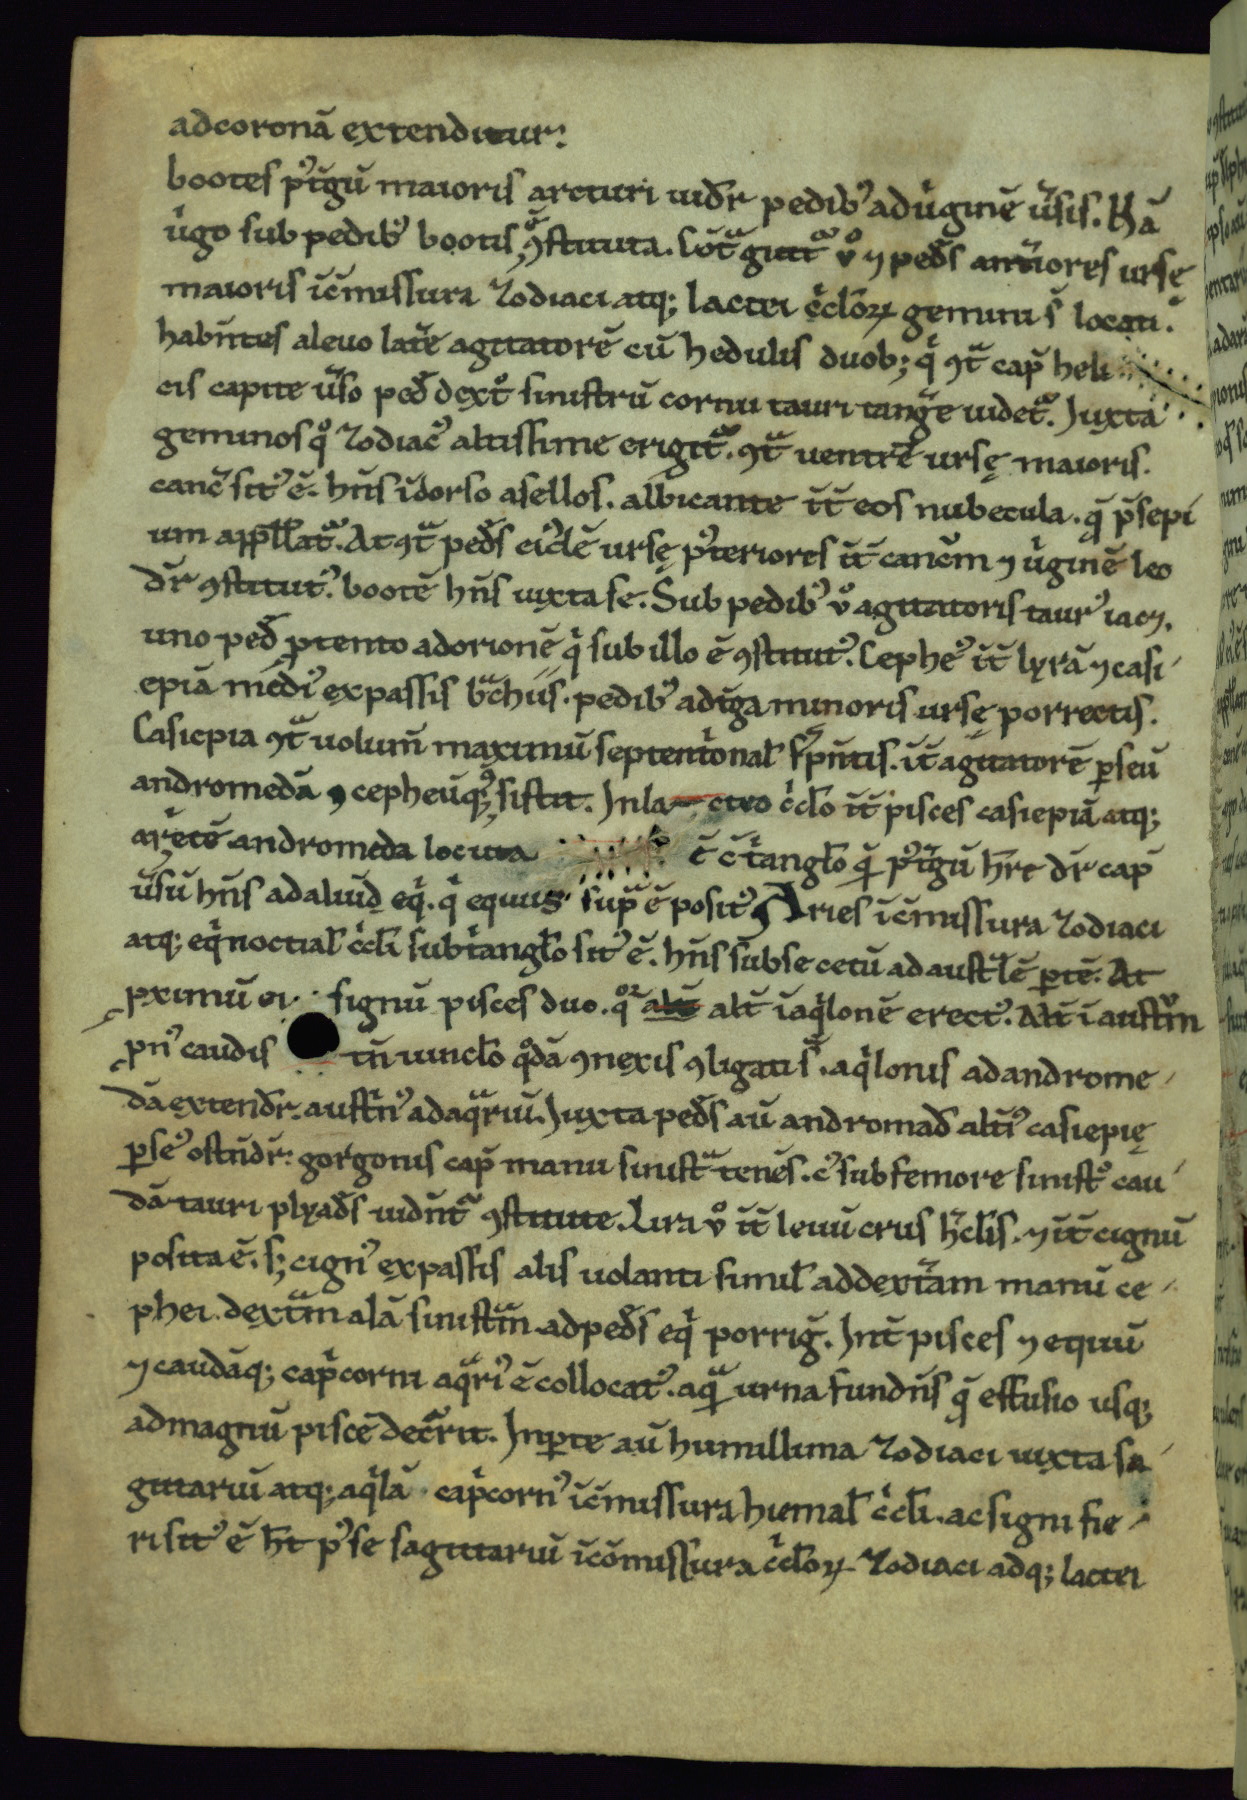 adcoronā extenditur:
bootes p᷒t̄gū maioris arcturi uidr̄ pedib᷒ adûginē ûsis. Nā
ûgo sub pedib᷒ bootis ꝯstituta. Cōt̄ gutt v̊ ⁊ ped̄s ant̄iores ursę
maioris īc̄missura zodiaci atq; lactei c̄clōꝝ gemini s̄ locati.
habn̄tes aleuo lat̄e agitatorē cū hedulis duob; q̇ ꝯt̄ cap̄ heli
cis capite ûso ped̄ dext̊ sinistrū cornu tauri tanḡe uidet᷑. Juxta
geminos q̊ zodiac᷒ altissime erigit᷑. ꝯt̄ uentrē ursę maioris.
canc̄ sit᷒ ē. hn̄s īdorso asellos. albicante īt̄ eos nubecula. q̄ p̄sepi
um app̄llat᷑. At ꝯt̄ ped̄s eiđē ursę p᷒teriores īt̄ canc̄m ⁊ ûginē leo
dr̄ ꝯstitut᷒. bootē hn̄s iuxta se. Sub pedib᷒ v̊ agitatoris taur᷒ iacꝫ.
uno ped̄ ꝓtento adorionē q̇ sub illo ē ꝯstitut᷒. Cephe᷒ īt̄ lyrā ⁊ casi
epiā medi᷒ expassis b̄chiis. pedib᷒ adt̄ga minoris ursę porrectis.
Casiepia ꝯt̄ uolum̄ maximū septent̄onal̄ s̄pn̄tis. īt̄ agitatorē ꝑseū
andromedā ⁊ cepheūq᷒; sistit. Jnla cteo c̄clo īt̄ pisces casiepiā atq;
arietē andromeda locata ē c̄ t̄anglo q̇ p᷒t̄gū hr̄e dr̄ cap̄
ûsū hn̄s adaluid eq̇. q̇ equus sup̄ ē posit᷒. Aries īc̄missura zodiaci
atq; eq̇noctial̄ c̄cli subt̄anglo sit᷒ ē. hn̄s subse cetū adaustlē ꝑtē. At
ꝓximū ei signū pisces duo. q̊ꝝ alt̄ īaq̇lonē erect᷒. Alt̄ ī aust̄m
pn᷒ caudis tn̄ uinclo q̊dā ꝯnexis ꝯligati s̄. aq̇lonis adandrome
dā extendr̄. aust̄n᷒ adaq̄riū. Juxta ped̄s aū andromad̄ alti᷒ casiepię
ꝑse᷒ ostn̄dr̄. gorgonis cap̄ manu sinist̄ tenēs. c᷒ sub femore sinist̊ cau
dā tauri plyad̄s uidn̄t᷑ ꝯstitute. Lira v̊ īt̄ leuū crus h̄clis. ⁊ īt̄ cignū
posita ē. s; cign᷒ expassis alis uolanti simil̄ addext̄am manū ce
phei. dext̄m alā sinist̄m adped̄s eq̇ porriḡ. Jnt̄ pisces ⁊ equū
⁊ caudāq; cap̄corni aq̄ri᷒ ē collocat᷒. aq̄ urna fundn̄s q̄ effusio usq;
admagnū piscē dec̄rit. Jnꝑte aū humillima zodiaci iuxta sa
gittariū atq; aq̇lā cap̄corn᷒ īc̄missura hiemal̄ c̄cli. ac signi fie
ri sit᷒ ē h̄t p᷒ se sagittariū īcōmissura c̄cloꝝ zodiaci adq; lactei